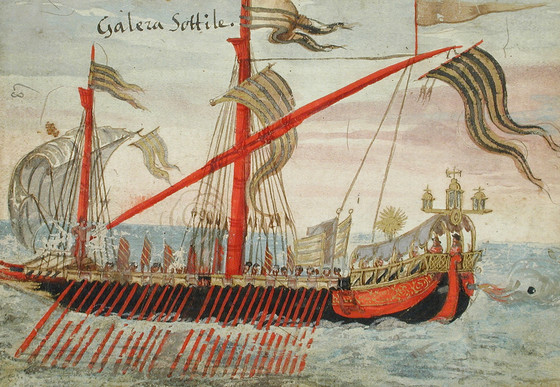 Galera Sottile.